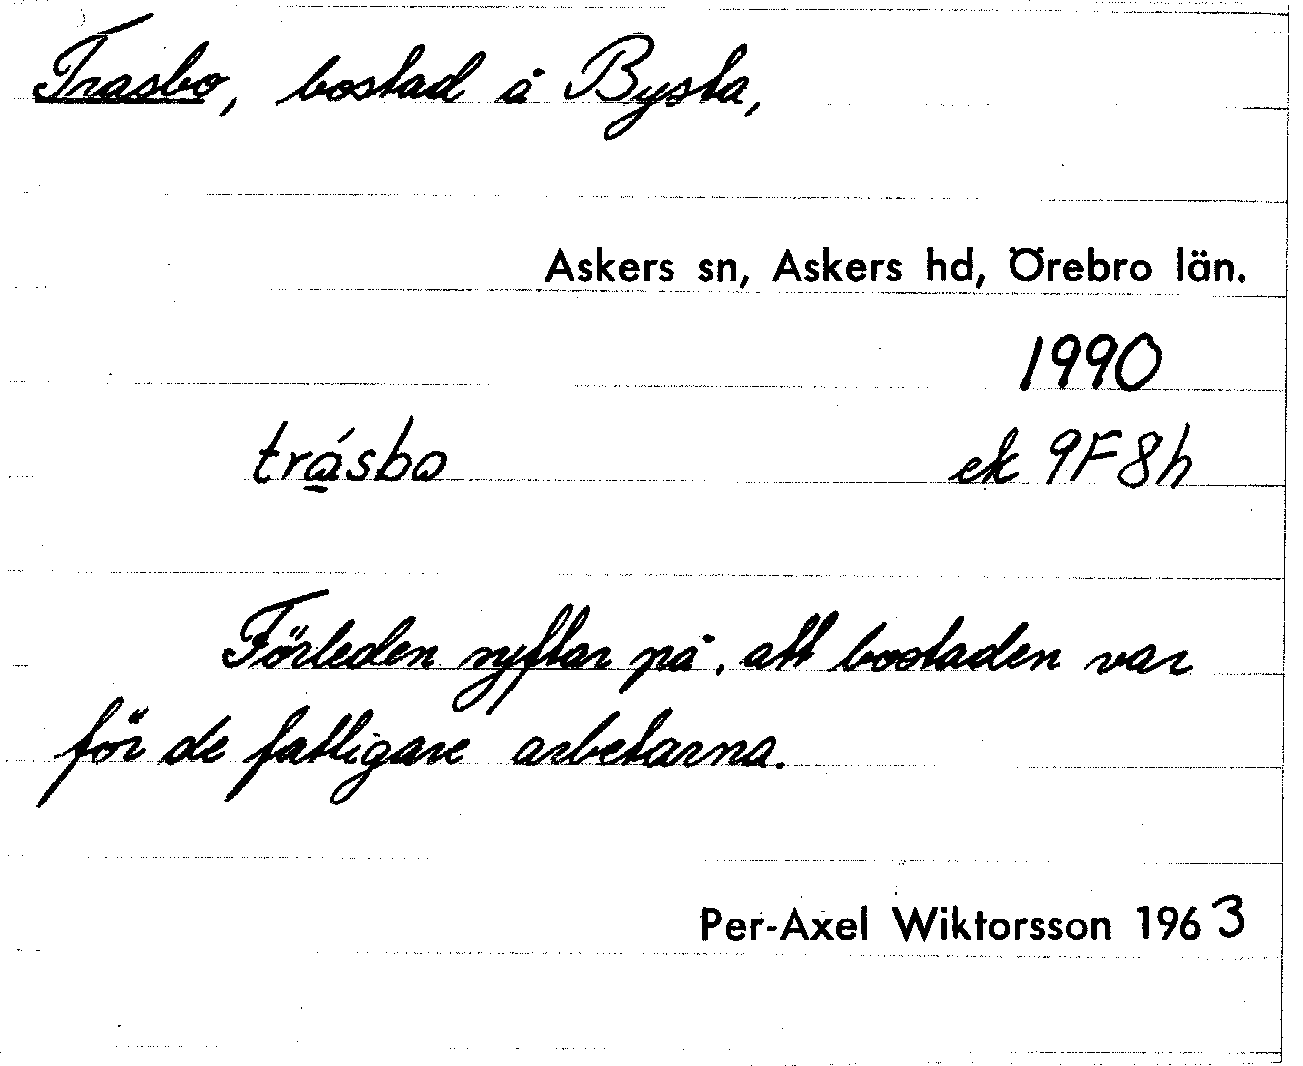 Trasbo, bostad å Bysta,
Askers sn, Askers hd, Örebro län.
1990
trạ́sbo ek 9F8h
Förleden syftar på, att bostaden var
för de fattigare arbetarna.
Per-Axel Wiktorsson 1963